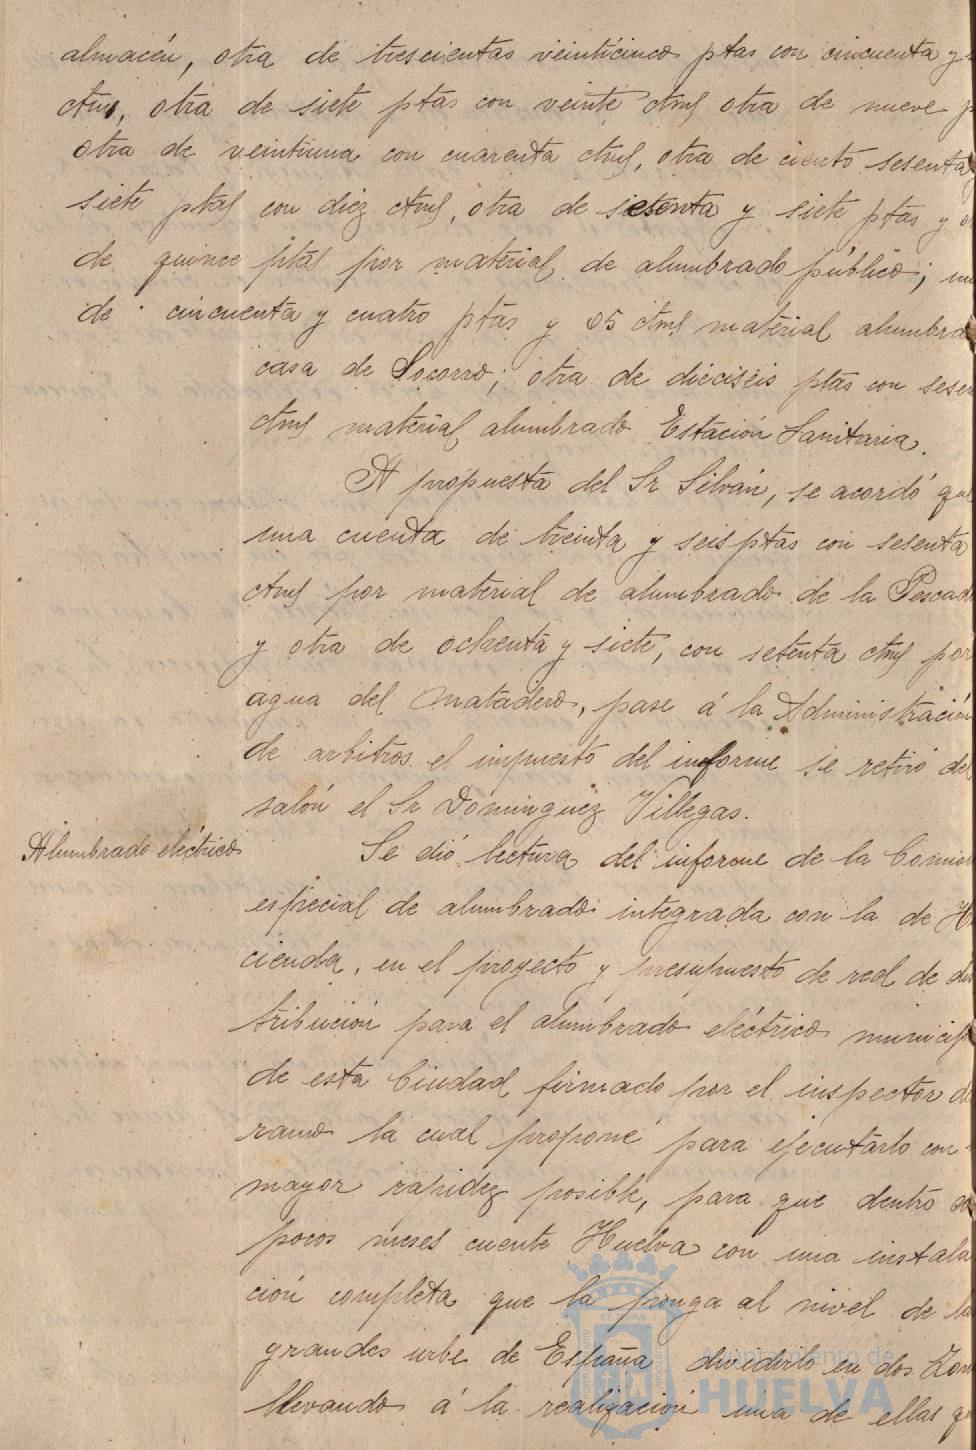 almacén, otra de trescientas veinticinco ptas con cincuenta y
ctms, otra de siete ptas con veinte ctms otra de nueve p
otra de veintiuna con cuarenta ctms, otra de ciento sesenta
siete ptas con diez ctms, otra de setenta y siete ptas y
de quince ptas por material de alumbrado público; un
de cincuenta y cuatro ptas y 05 ctms material alumbrado
casa de Socorro; otra de dieciséis ptas con sesen
ctms material alumbrado Estación Sanitaria.
A propuesta del Sr Silván, se acordó que
una cuenta de treinta y seis ptas con sesenta
ctms por material de alumbrado de la Pescad
y otra de ochenta y siete, con setenta ctms por
agua del Matadero, pase á la Administración
de arbitros el impuesto del informe se retiró del
salón el Sr Dominguez Villegas.
Alumbrado eléctrico
Se dió lectura del informe de la Comisi
especial de alumbrado integrada con la de H
cienda, en el proyecto y presupuesto de red de dis
tribución para el alumbrado eléctrico municip
de esta Ciudad firmado por el inspector d
ramo la cual propone para ejecutarlo con
mayor rapidez posible, para que dentro
pocos meses cuente Huelva con una instala
ción completa que la ponga al nivel de la
grandes urbe de España dividirlo en dos Zon
llevando á la realización una de ellas q
Ayuntamiento de
HUELVA